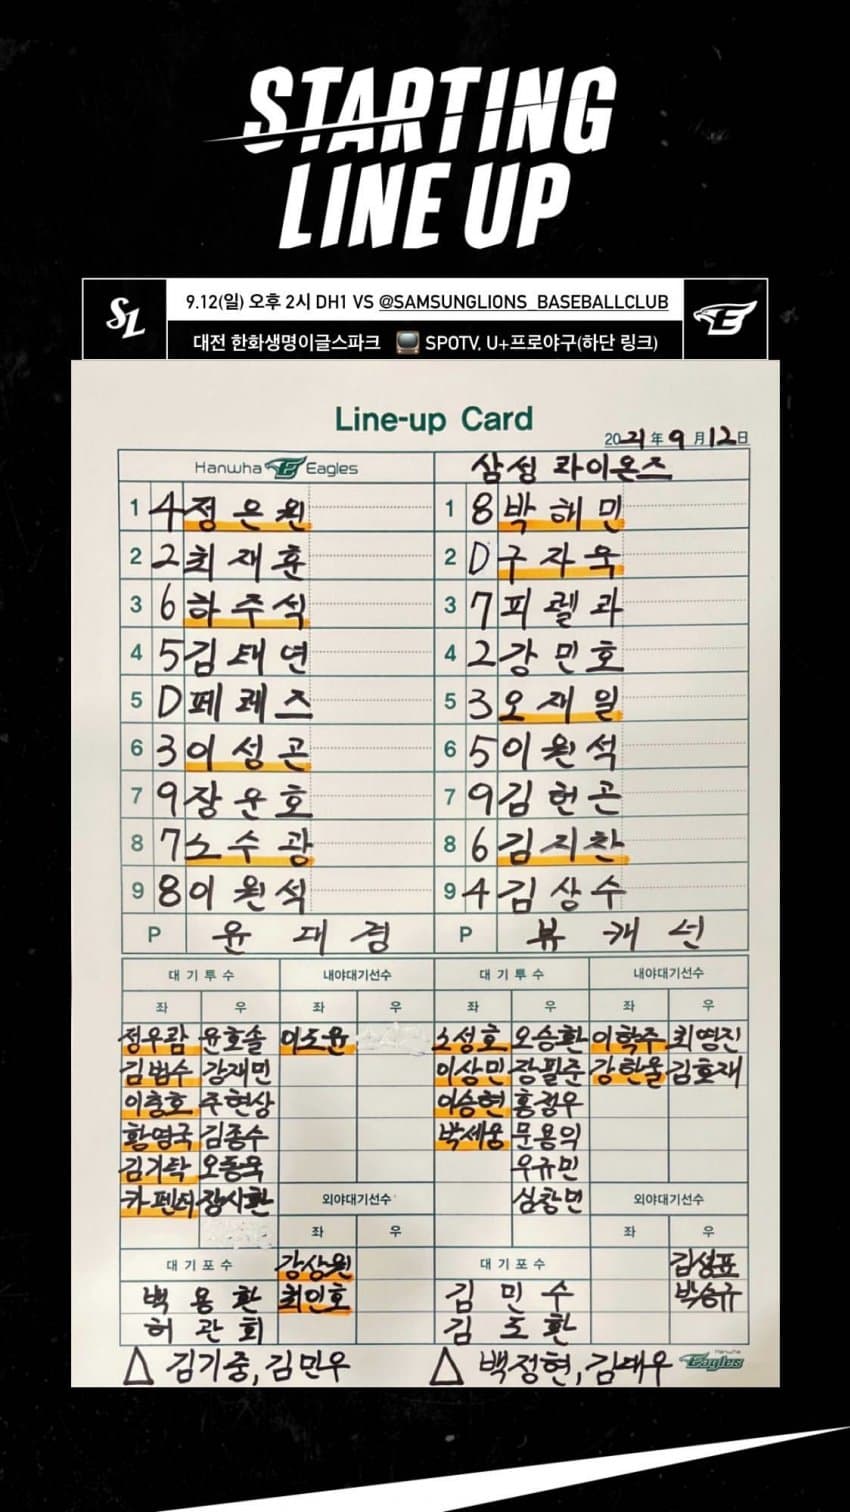 STARTING
LINE UP
SL
9.12(일) 오후 2시 DH1 VS @SAMSUNGLIONS_BASEBALLCLUB
대전 한화생명이글스파크 SPOTV, U+프로야구(하단 링크)
Line-up Card
2021年 9月 12日
Hanwha Eagles 삼성 라이온즈
1 4 정은원 1 8 박해민
2 2 최재훈 2 D 구자욱
3 6 하주석 3 7 피렐라
4 5 김태연 4 2 강민호
5 D 페레즈 5 3 오재일
6 3 이성곤 6 5 이원석
7 9 장운호 7 9 김헌곤
8 7 노수광 8 6 김지찬
9 8 이원석 9 4 김상수
P 윤대경 P 뷰캐넌
대기투수 내야대기선수 대기투수 내야대기선수
좌 우 좌 우 좌 우 좌 우
정우람 윤호솔 이도윤 노성호 오승환 이학주 최영진
김범수 강재민 이상민 장필준 강한울 김호재
이충호 주현상 이승현 홍정우
황영국 김종수 박세웅 문용익
김기탁 오동욱 우규민
카펜터 장시환 외야대기선수 심창민 외야대기선수
좌 우 좌 우
대기포수 강상원 대기포수 김성표
백용환 최인호 김민수 박승규
허관회 김도환
△ 김기중, 김민우 △ 백정현, 김대우 Hanwha Eagles